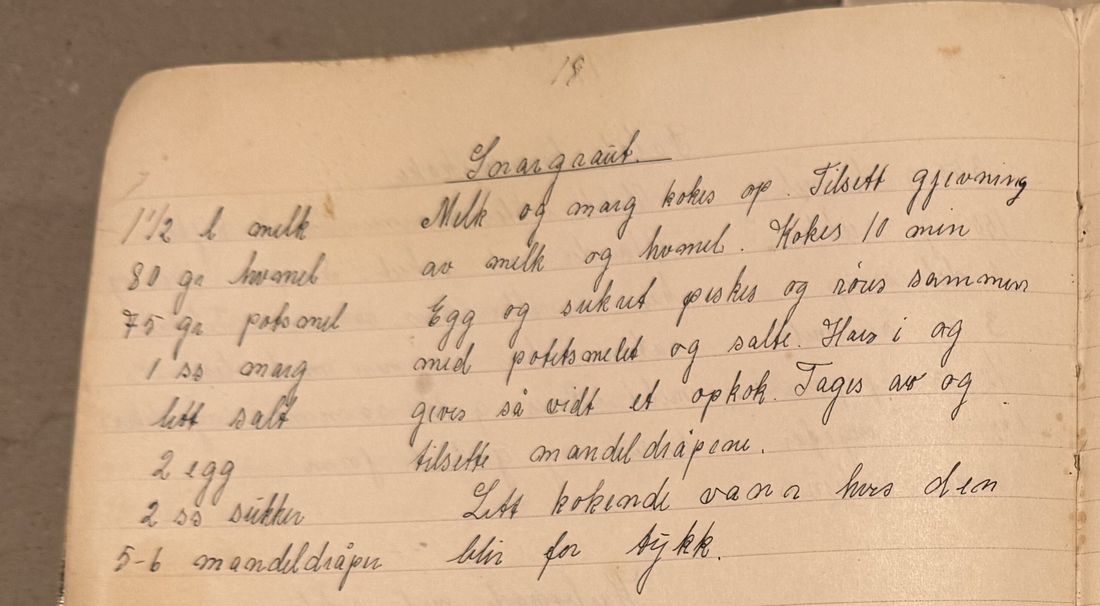 18
Snargraut.
1 1/2 l melk
80 gr hvmel
75 gr potsmel
1 ss marg
litt salt
2 egg
2 ss sukker
5-6 mandeldråper
Melk og marg kokes op. Tilsett gjevning
av melk og hvmel. Kokes 10 min
Egg og sukret piskes og röres sammen
med potetsmelet og salte. Haes i og
geves så vidt et opkok. Tages av og
tilsette mandeldråpene.
Litt kokende vann hvis den
blir for tykk.